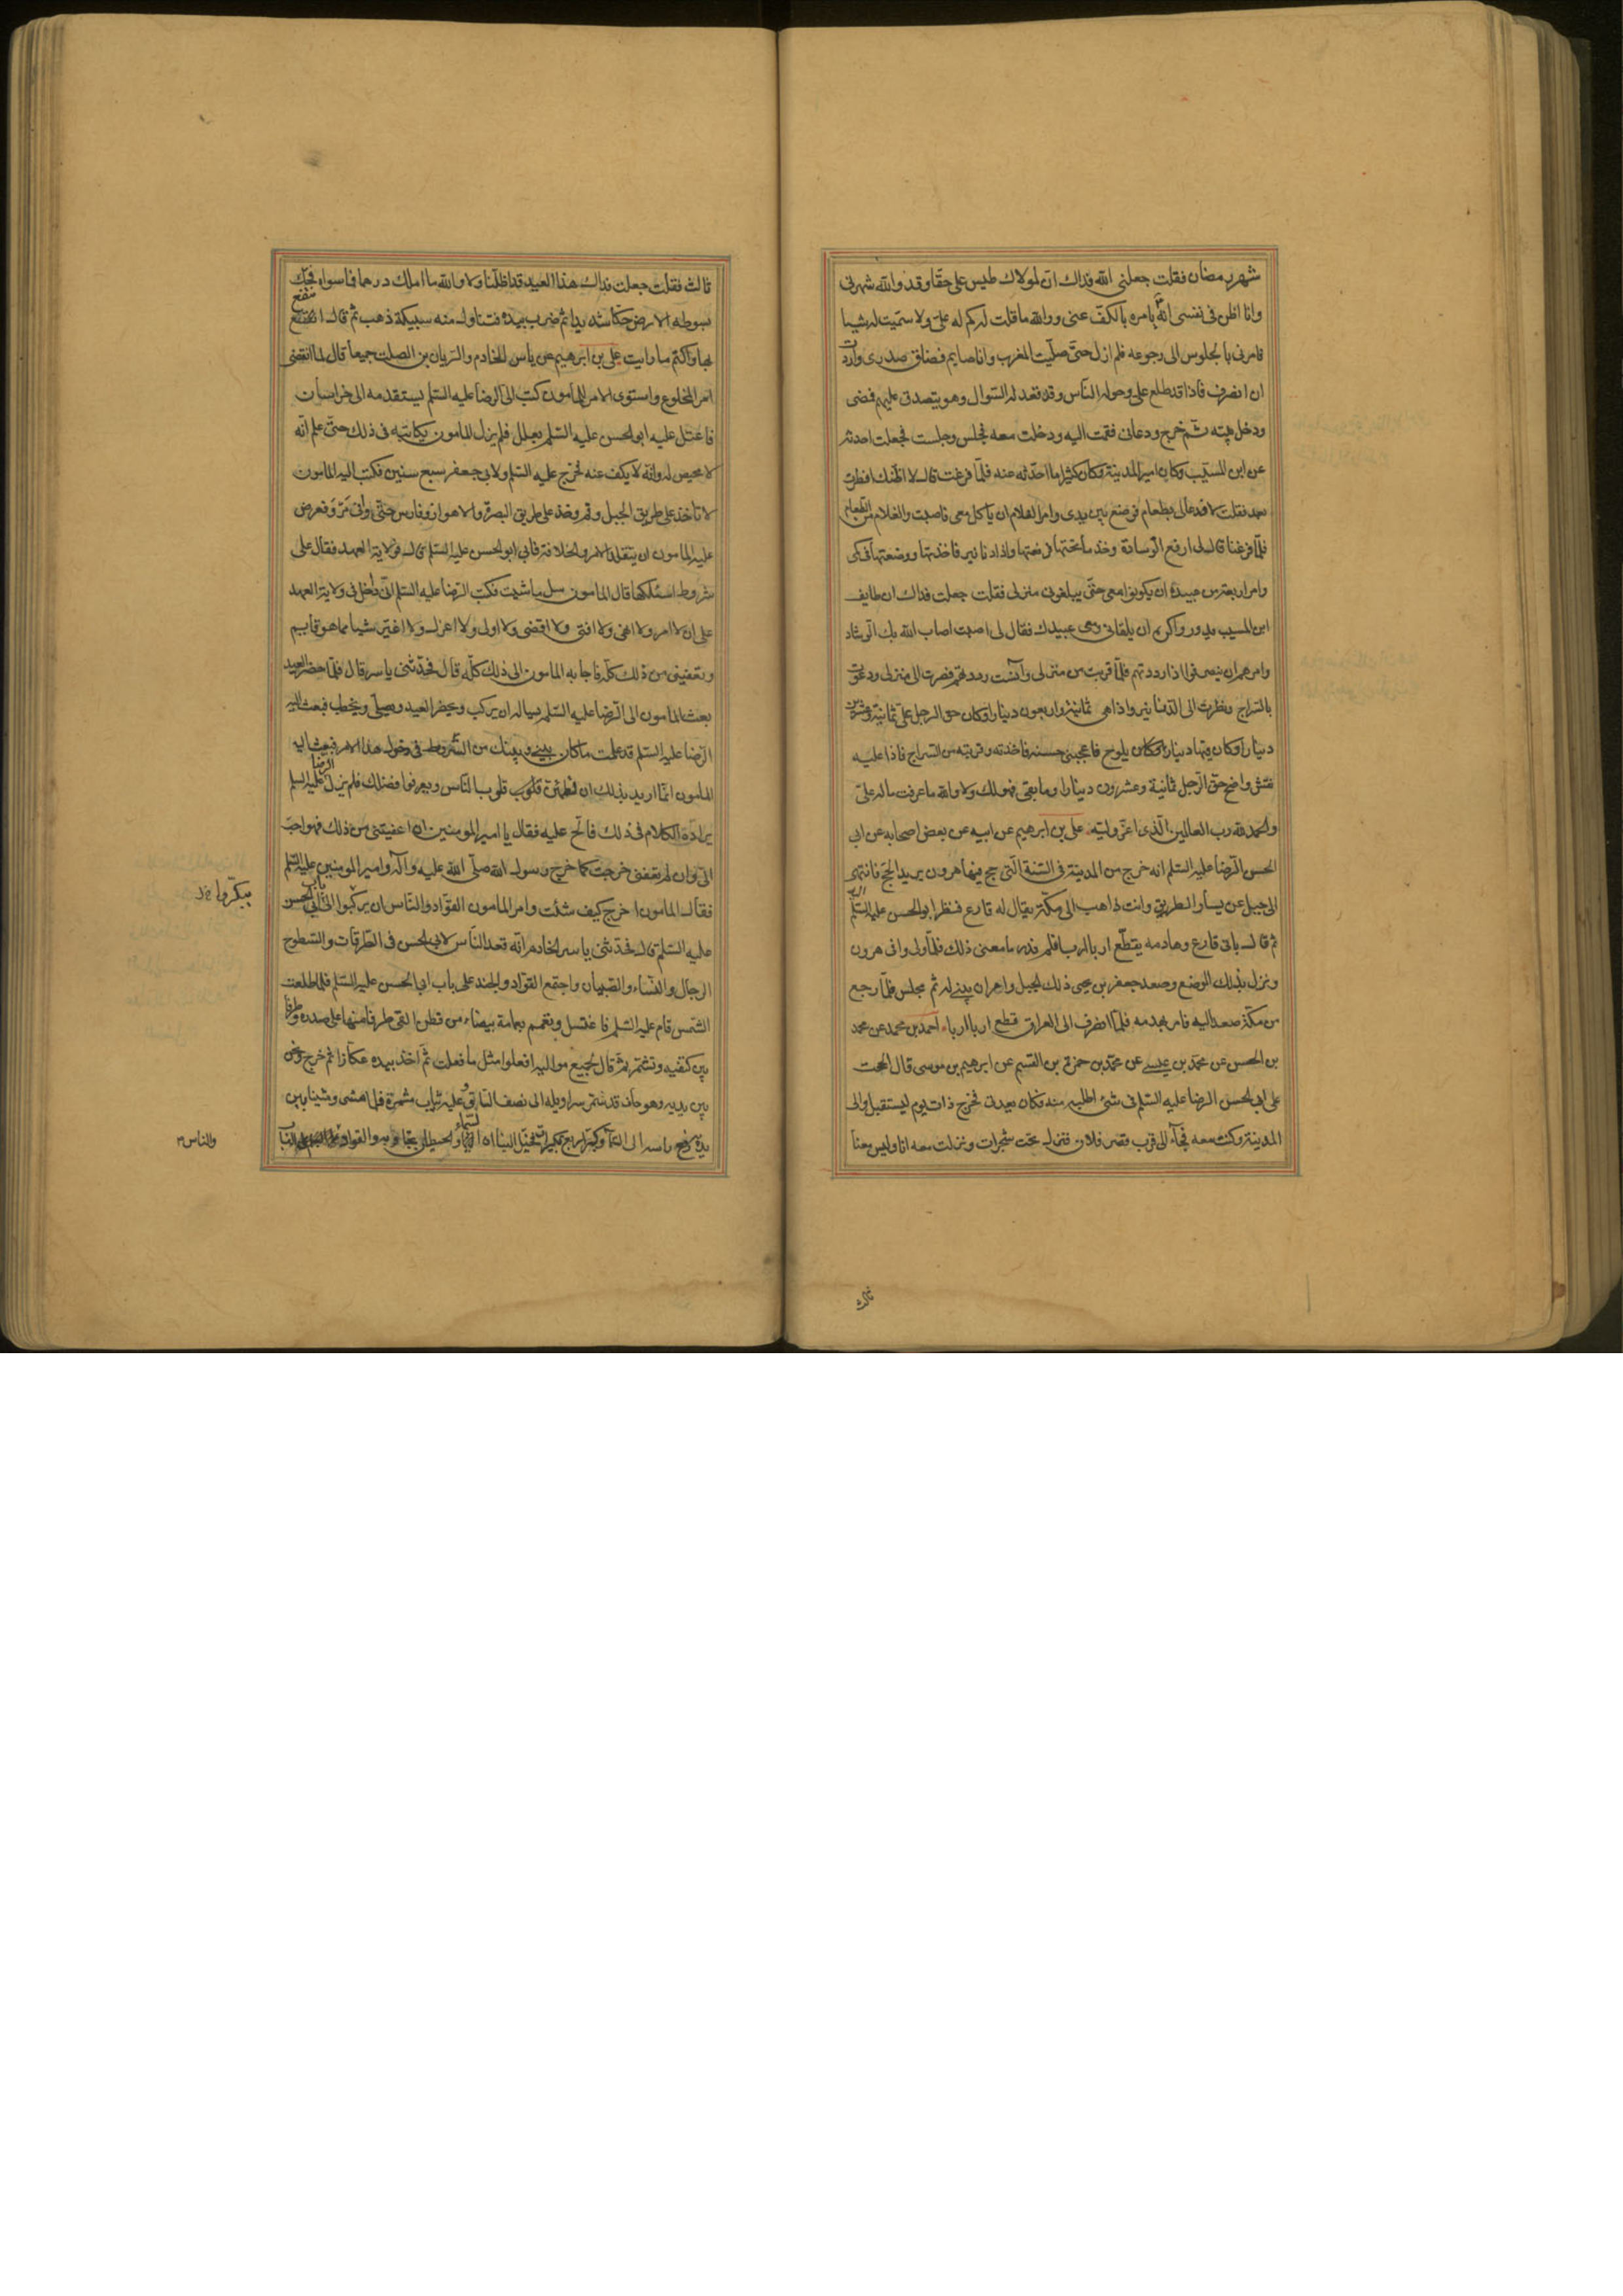 شهر رمضان فقلت جعلنى الله فداك ان لمولاك طيس على حقا وقد والله شهرنى
وانا اظن فى نفسى انه يامره بالكف عنى ووالله ما قلت له كم له على ولا سميت له شيئا
فامرنى بالجلوس الى رجوعه فلم ازل حتى صليت المغرب وانا صايم فضاق صدرى واردت
ان انصرف فاذا قد طلع على وحوله الناس وقد قعد له السوال وهو يتصدق عليهم فمضى
ودخل بيته ثم خرج ودعانى فقمت اليه ودخلت معه فجلس وجلست فجعلت احدثه
عن ابن المسيب وكان امير المدينة وكان كثيرا ما احدثه عنه فلما فرغت قال لا اظنك افطرت
بعد فقلت لا فدعا لى بطعام فوضع بين يدى وامر الغلام ان ياكل معى فاصبت والغلام من الطعام
فلما فرغنا قال لى ارفع الوسادة وخذ ما تحتها فرفعتها واذا دنانير فاخذتها ووضعتها فى كمى
وامر اربعة من عبيده ان يكونوا معى حتى يبلغونى منزلى فقلت جعلت فداك ان طايف
ابن المسيب يدور واكره ان يلقانى ومعى عبيدك فقال لى اصبت اصاب الله بك الرشاد
وامرهم ان ينصرفوا اذا رددتهم فلما قربت من منزلى وآنست رددتهم فصرت الى منزلى ودعوت
بالسراج ونظرت الى الدنانير واذا هى ثمانية واربعون دينارا وكان حق الرجل على ثمانية وعشرين
دينارا وكان فيها دينار وكان يلوح فاعجبنى حسنه فاخذته وقربته من السراج فاذا عليه
نقش واضح حق الرجل ثمانية وعشرون دينارا وما بقى فهو لك ولا والله ما عرفت ما له على
والحمد لله رب العالمين الذى اعز وليه على بن ابرهيم عن ابيه عن بعض اصحابه عن ابى
الحسن الرضا عليه السلم انه خرج من المدينة فى السنة التى حج فيها هرون يريد الحج فانتهى
الى جبل عن يسار الطريق وانت ذاهب الى مكة يقال له فارع فنظر اليه ابو الحسن عليه السلم
ثم قال بانى فارع وهادمه يقطع اربا اربا فلم ندر ما معنى ذلك فلما ولى وافى هرون
ونزل بذلك الموضع وصعد جعفر بن يحيى ذلك الجبل وامر ان يبنى له ثم مجلس فلما رجع
من مكة صعد اليه فامر بهدمه فلما انصرف الى العراق قطع اربا اربا احمد بن محمد عن محمد
بن الحسن عن محمد بن عيسى عن محمد بن حمزة بن القسم عن ابرهيم بن موسى قال الححت
على ابى الحسن الرضا عليه السلم فى شئ اطلبه منه فكان يعدنى فخرج ذات يوم ليستقبل والى
المدينة وكنت معه فجاء الى قرب قصر فلان فنزل تحت شجرات ونزلت معه انا وليس معنا
ثالث
ثالث فقلت جعلت فداك هذا العيد قد اظلنا ولا والله ما املك درهما فما سواه فحك
بسوطه الارض حكا شديدا ثم ضرب بيده فتناول منه سبيكة ذهب ثم قال انتفع
بها واكتم ما رايت على بن ابرهيم عن ياسر الخادم والريان بن الصلت جميعا قال لما انقضى
امر المخلوع واستوى الامر للمأمون كتب الى الرضا عليه السلم يستقدمه الى خراسان
فاعتل عليه ابو الحسن عليه السلم بعلل فلم يزل المامون يكاتبه فى ذلك حتى علم انه
لا محيص له وانه لا يكف عنه فخرج عليه السلم ولابى جعفر سبع سنين فكتب اليه المامون
لا تاخذ على طريق الجبل وقم وخذ على طريق البصرة والاهواز وفارس حتى وافى مرو فعرض
عليه المامون ان يتقلد الامر والخلافة فابى ابو الحسن عليه السلم قال فولاية العهد فقال على
شروط اسئلكها قال المامون سل ما شيت فكتب الرضا عليه السلم انى داخل فى ولاية العهد
على ان لا امر ولا انهى ولا افتى ولا اقضى ولا اولى ولا اعزل ولا اغير شيئا مما هو قايم
وتعفينى من ذلك كله فاجابه المامون الى ذلك كله قال فحدثنى ياسر قال فلما حضر العيد
بعث المامون الى الرضا عليه السلم يساله ان يركب ويحضر العيد ويصلى ويخطب فبعث اليه
الرضا عليه السلم قد علمت ما كان بينى وبينك من الشروط فى دخول هذا الامر فبعث اليه
المامون انما اريد بذلك ان تطمئن قلوب الناس ويعرفوا فضلك فلم يزل الرضا عليه السلم
يراده الكلام فى ذلك فالح عليه فقال يا امير المومنين ان اعفيتنى من ذلك فهو احب
الى وان لم تعفنى خرجت كما خرج رسول الله صلى الله عليه وآله وامير المومنين عليه السلم
فقال المامون اخرج كيف شئت وامر المامون القواد والناس ان يركبوا الى باب ابى الحسن
يبكروا خ ل
عليه السلم قال فحدثنى ياسر الخادم انه قعد الناس لابى الحسن فى الطرقات والسطوح
الرجال والنساء والصبيان واجتمع القواد والجند على باب ابى الحسن عليه السلم فلما طلعت
الشمس قام عليه السلم فاغتسل وتعمم بعمامة بيضاء من قطن القى طرفا منها على صدره وطرفا
بين كتفيه وتشمر ثم قال لجميع مواليه افعلوا مثل ما فعلت ثم اخذ بيده عكازا ثم خرج ونحن
بين يديه وهو حاف قد شمر سراويله الى نصف الساق وعليه ثياب مشمرة فلما مشى ومشينا بين
يديه رفع راسه الى السماء وكبر اربع تكبيرات فخيل الينا ان السماء والحيطان تجاوبه والقواد
والناس